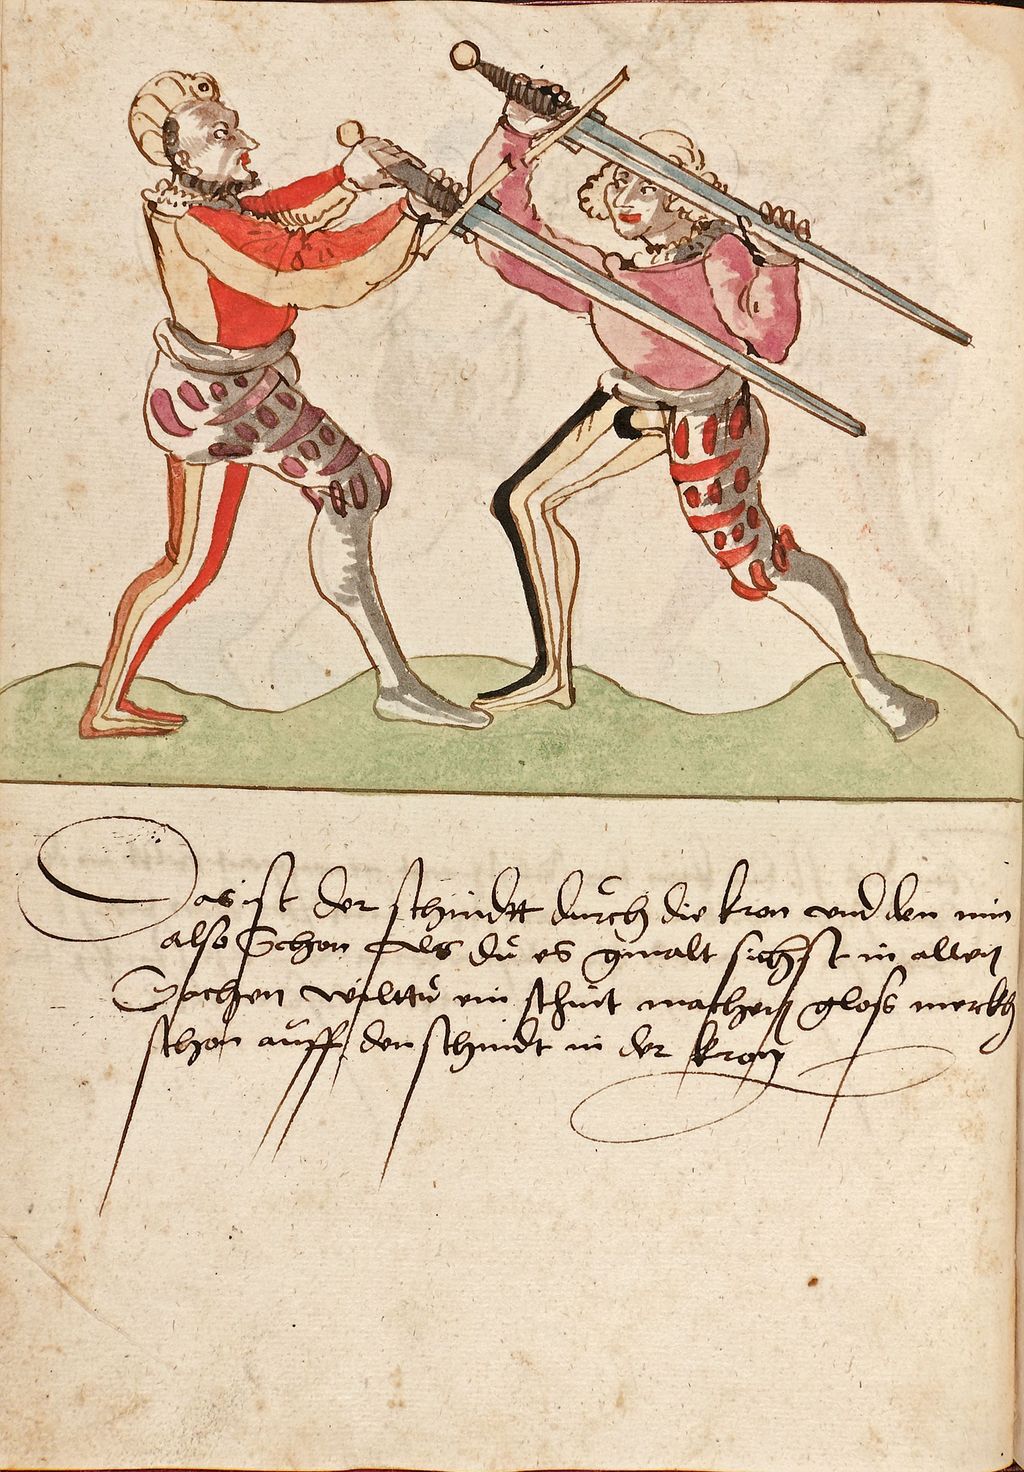 Das ist der schnidtt durch die kron vnd den nim
also Schon Als du es gmalt sichst in allen
Sachen wilttu ein schnit machen gloss merkh
schon auff den schnidt in der kron